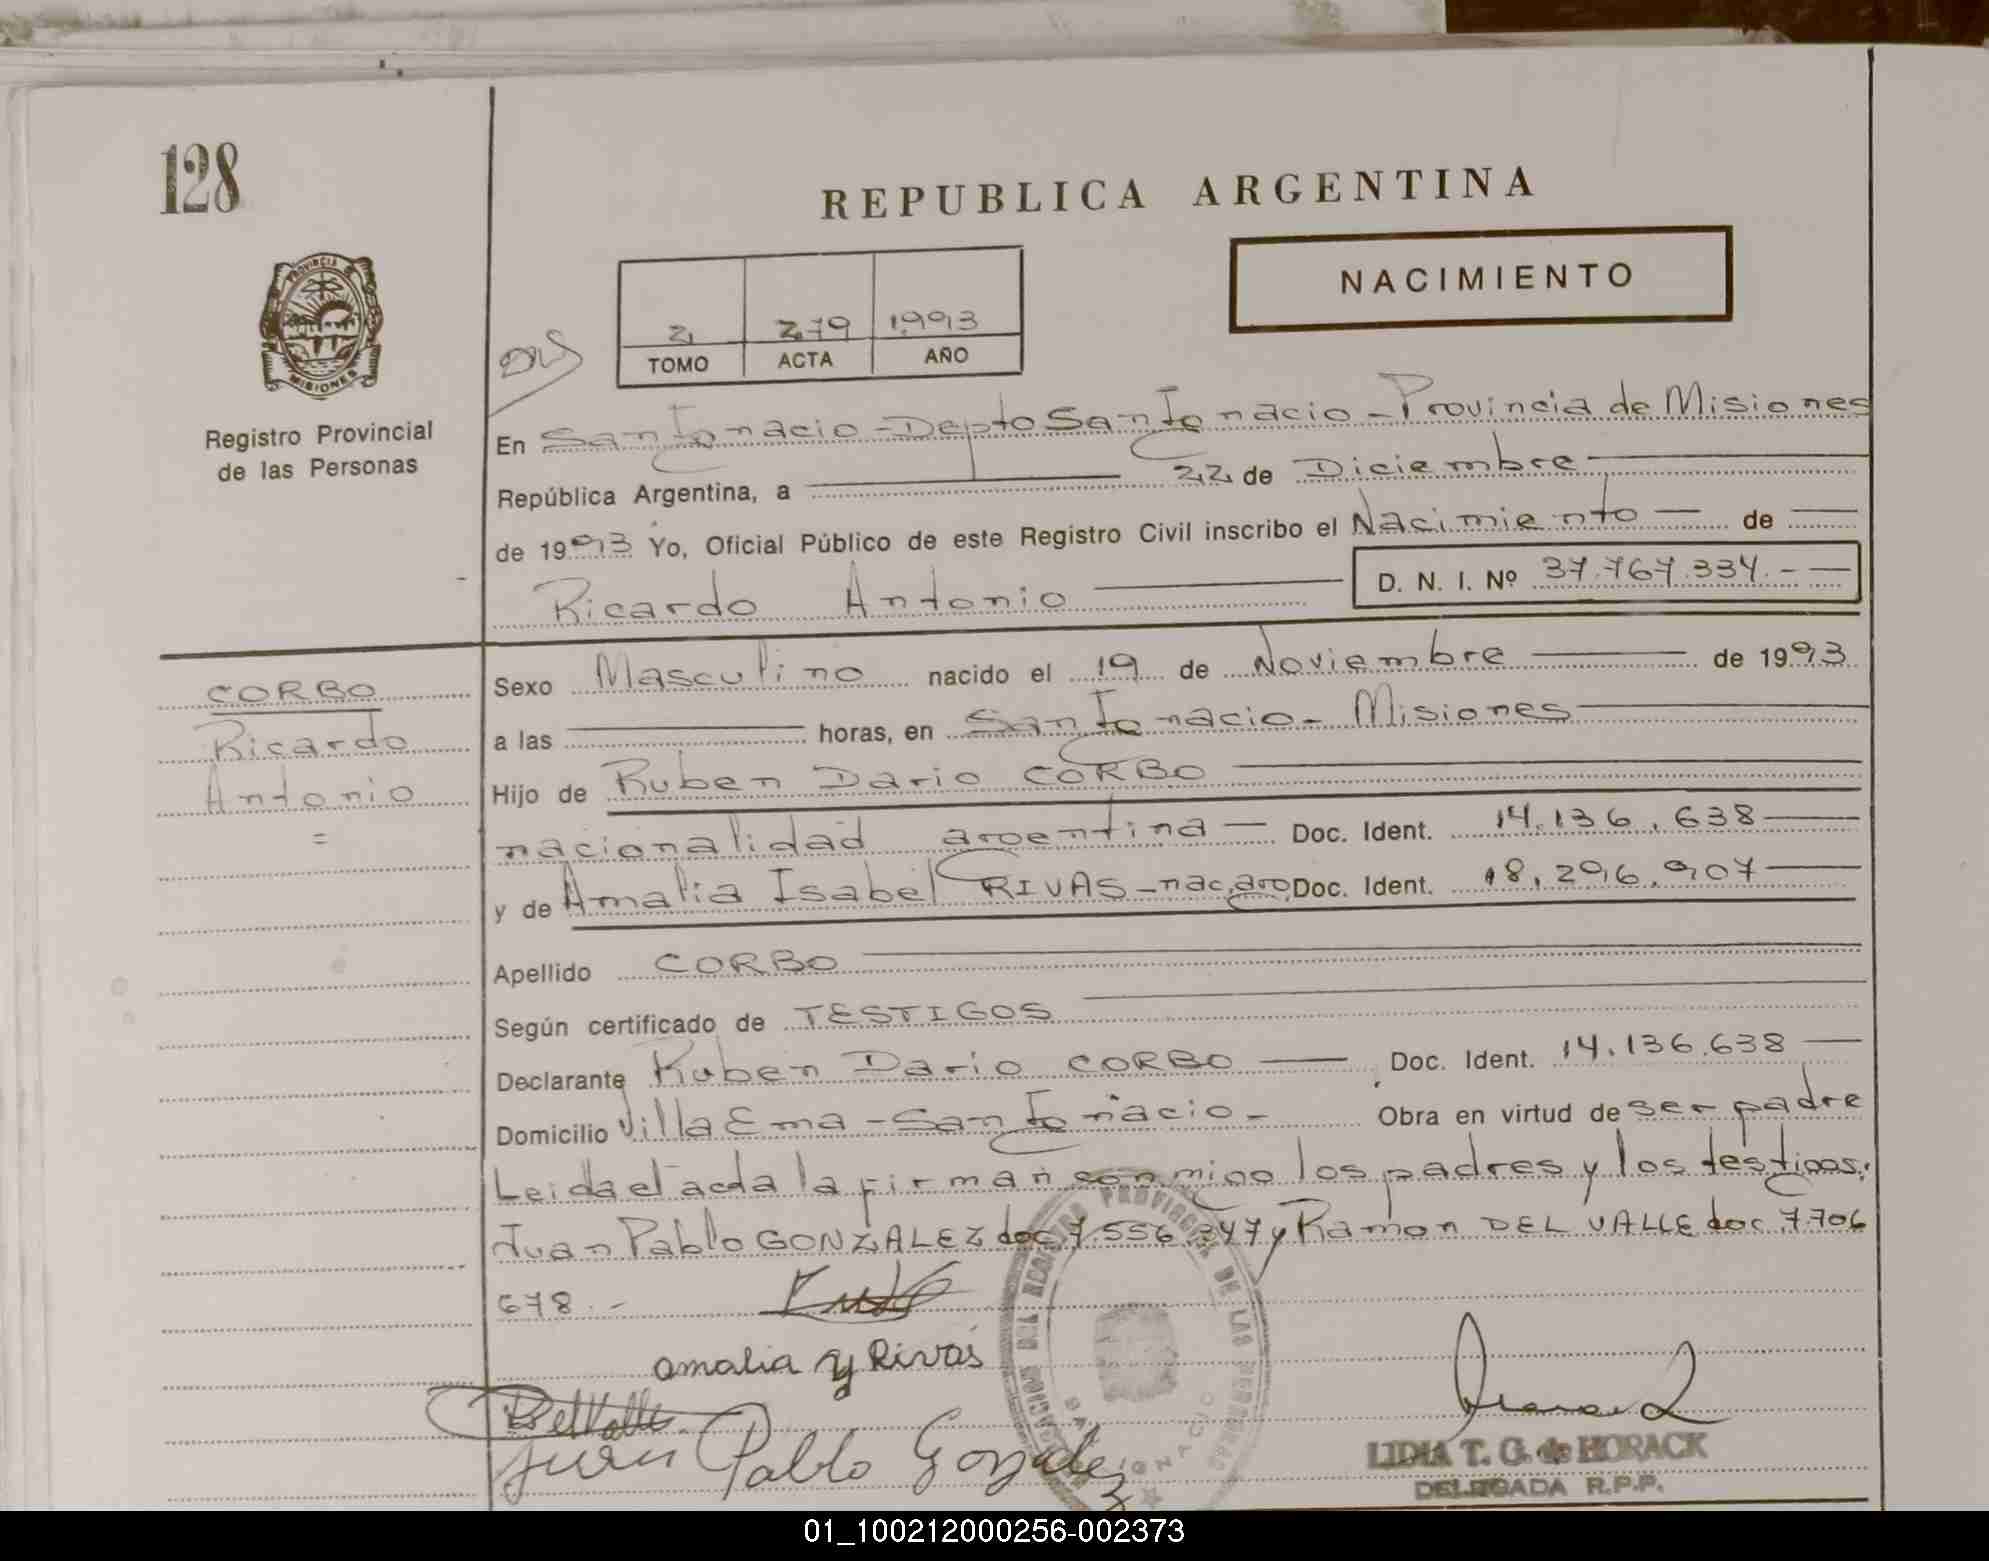 128
REPUBLICA ARGENTINA
NACIMIENTO
PROVINCIA DE
MISIONES
Registro Provincial
de las Personas
2 279 1993
TOMO ACTA AÑO
En San Ignacio - Depto San Ignacio - Provincia de Misiones
República Argentina, a 22 de Diciembre
de 1993 Yo, Oficial Público de este Registro Civil inscribo el Nacimiento de
Ricardo Antonio D. N. I. Nº 37.767.334.-
CORBO
Ricardo
Antonio
=
Sexo Masculino nacido el 19 de Noviembre de 1993
a las horas, en San Ignacio - Misiones
Hijo de Ruben Dario CORBO
nacionalidad argentina Doc. Ident. 14.136.638
y de Amalia Isabel RIVAS - nac. arg. Doc. Ident. 18.296.907
Apellido CORBO
Según certificado de TESTIGOS
Declarante Ruben Dario CORBO Doc. Ident. 14.136.638
Domicilio Villa Ema - San Ignacio - Obra en virtud de ser padre
Leida el acta la firman conmigo los padres y los testigos:
Juan Pablo GONZALEZ doc 7.556.347 y Ramon DEL VALLE doc. 7.706
678.-
amalia y Rivas
DelValle
Juan Pablo Gonzalez
DEL REGISTRO PROVINCIAL DE LAS PERSONAS
SAN IGNACIO
LIDIA T. G. de HORACK
DELEGADA R.P.P.
01_100212000256-002373